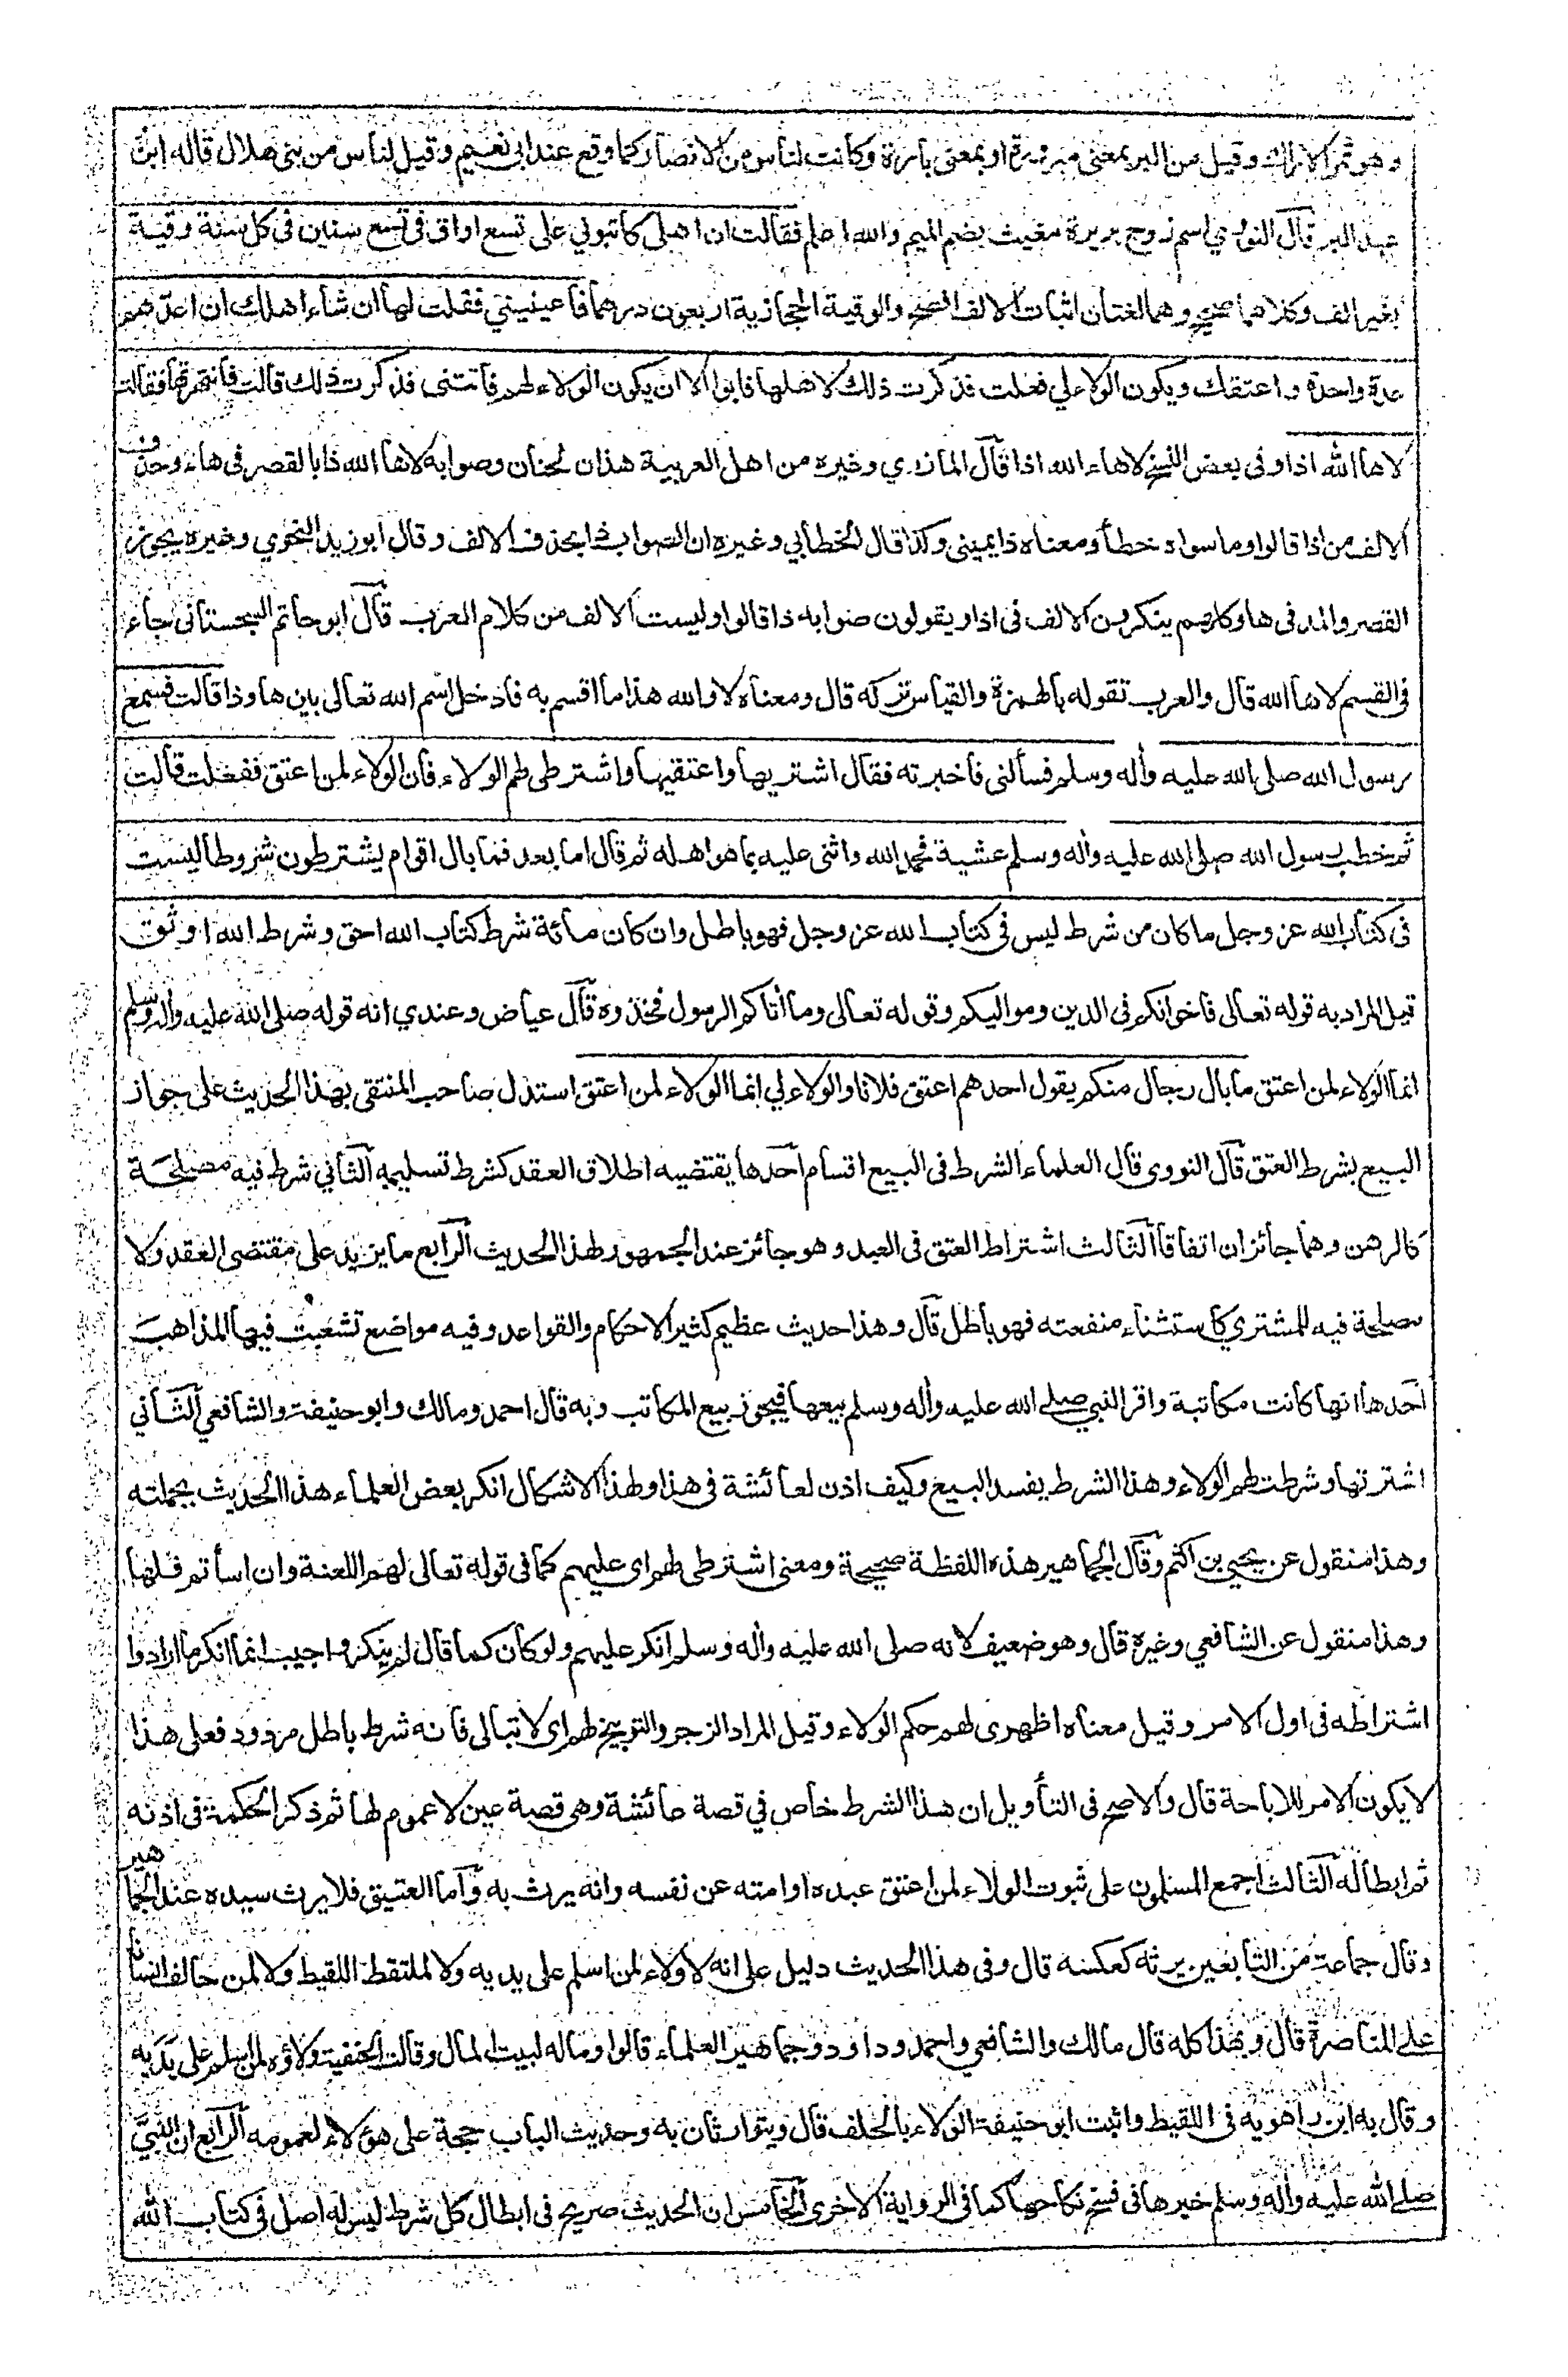 وهو ثمر الاراك وقيل من البر بمعنى مبرورة او بمعنى بارة وكانت لناس من الانصار كما وقع عند ابى نعيم وقيل لناس من بنى هلال قاله ابن
عبد البر قال النووي اسم زوج بريرة مغيث بضم الميم والله اعلم فقالت ان اهلى كاتبوني على تسع اواق فى تسع سنين فى كل سنة وقية
بغير الف وكلاهما صحيح وهما لغتان اثبات الالف افصح والوقية الحجازية اربعون درهما فاعينيني فقلت لها ان شاء اهلك ان اعدها لهم
عدة واحدة واعتقك ويكون الولاء لي فعلت فذكرت ذلك لاهلها فابوا الا ان يكون الولاء لهم فاتتنى فذكرت ذلك قالت فانتهرتها فقالت
لاها الله اذا وفى بعض النسخ لاهاء الله اذا قال المازري وغيره من اهل العربية هذان لحنان وصوابه لاها الله ذا بالقصر فى هاء وحذف
الالف من اذا قالوا وما سواه خطأ ومعناه ذا يمينى وكذا قال الخطابي وغيره ان الصواب ذا بحذف الالف وقال ابوزيد النحوي وغيره يجوز
القصر والمد فى ها وكلهم ينكرون الالف فى اذا ويقولون صوابه ذا قالوا وليست الالف من كلام العرب قال ابوحاتم السجستانى جاء
فى القسم لاها الله قال والعرب تقوله بالهمزة والقياس تركه قال ومعناه لا والله هذا ما اقسم به فادخل اسم الله تعالى بين ها وذا قالت فسمع
رسول الله صلى الله عليه واله وسلم فسألنى فاخبرته فقال اشتريها واعتقيها واشترطى لهم الولاء فان الولاء لمن اعتق ففعلت قالت
ثم خطب رسول الله صلى الله عليه واله وسلم عشية فحمد الله واثنى عليه بما هو اهله ثم قال اما بعد فما بال اقوام يشترطون شروطا ليست
فى كتاب الله عز وجل ما كان من شرط ليس فى كتاب الله عز وجل فهو باطل وان كان مائة شرط كتاب الله احق وشرط الله اوثق
قيل المراد به قوله تعالى فاخوانكم فى الدين ومواليكم وقوله تعالى وما اتاكم الرسول فخذوه قال عياض وعندي انه قوله صلى الله عليه واله وسلم
انما الولاء لمن اعتق ما بال رجال منكم يقول احدهم اعتق فلانا والولاء لي انما الولاء لمن اعتق استدل صاحب المنتقى بهذا الحديث على جواز
البيع بشرط العتق قال النووى قال العلماء الشرط فى البيع اقسام احدها يقتضيه اطلاق العقد كشرط تسليمه الثاني شرط فيه مصلحة
كالرهن وهما جائزان اتفاقا الثالث اشتراط العتق فى العبد وهو جائز عند الجمهور لهذا الحديث الرابع ما يزيد على مقتضى العقد ولا
مصلحة فيه للمشتري كاستثناء منفعته فهو باطل قال وهذا حديث عظيم كثير الاحكام والقواعد وفيه مواضع تشعبت فيها المذاهب
احدها انها كانت مكاتبة واقر النبي صلى الله عليه واله وسلم بيعها فيجوز بيع المكاتب وبه قال احمد ومالك وابو حنيفة والشافعي الثاني
اشترتها وشرطت لهم الولاء وهذا الشرط يفسد البيع وكيف اذن لعائشة فى هذا ولهذا الاشكال انكر بعض العلماء هذا الحديث بجملته
وهذا منقول عن يحيى بن اكثم وقال الجماهير هذه اللفظة صحيحة ومعنى اشترطى لهم اى عليهم كما فى قوله تعالى لهم اللعنة وان اسأتم فلها
وهذا منقول عن الشافعي وغيره قال وهو ضعيف لانه صلى الله عليه واله وسلم انكر عليهم ولو كان كما قال لم ينكر واجيب انما انكر ما ارادوا
اشتراطه فى اول الامر وقيل معناه اظهرى لهم حكم الولاء وقيل المراد الزجر والتوبيخ لهم اى لا تبالى فانه شرط باطل مردود فعلى هذا
لا يكون الامر للاباحة قال والاصح فى التأويل ان هذا الشرط خاص في قصة عائشة وهى قصة عين لا عموم لها ثم ذكر الحكمة فى اذنه
ثم ابطاله الثالث اجمع المسلمون على ثبوت الولاء لمن اعتق عبده او امته عن نفسه وانه يرث به واما العتيق فلا يرث سيده عند الجماهير
وقال جماعة من التابعين يرثه كعكسه قال وفى هذا الحديث دليل على انه لا ولاء لمن اسلم على يديه ولا لملتقط اللقيط ولا لمن حالف انسانا
على المناصرة قال وبهذا كله قال مالك والشافعي واحمد وداود وجماهير العلماء قالوا وماله لبيت المال وقالت الحنفية ولاؤه لمن اسلم على يديه
وقال به ابن راهويه فى اللقيط واثبت ابو حنيفة الولاء بالحلف قال ويتوارثان به وحديث الباب حجة على هؤلاء لعمومه الرابع ان النبي
صلى الله عليه واله وسلم خيرها فى فسخ نكاحها كما فى الرواية الاخرى الخامس ان الحديث صريح فى ابطال كل شرط ليس له اصل فى كتاب الله